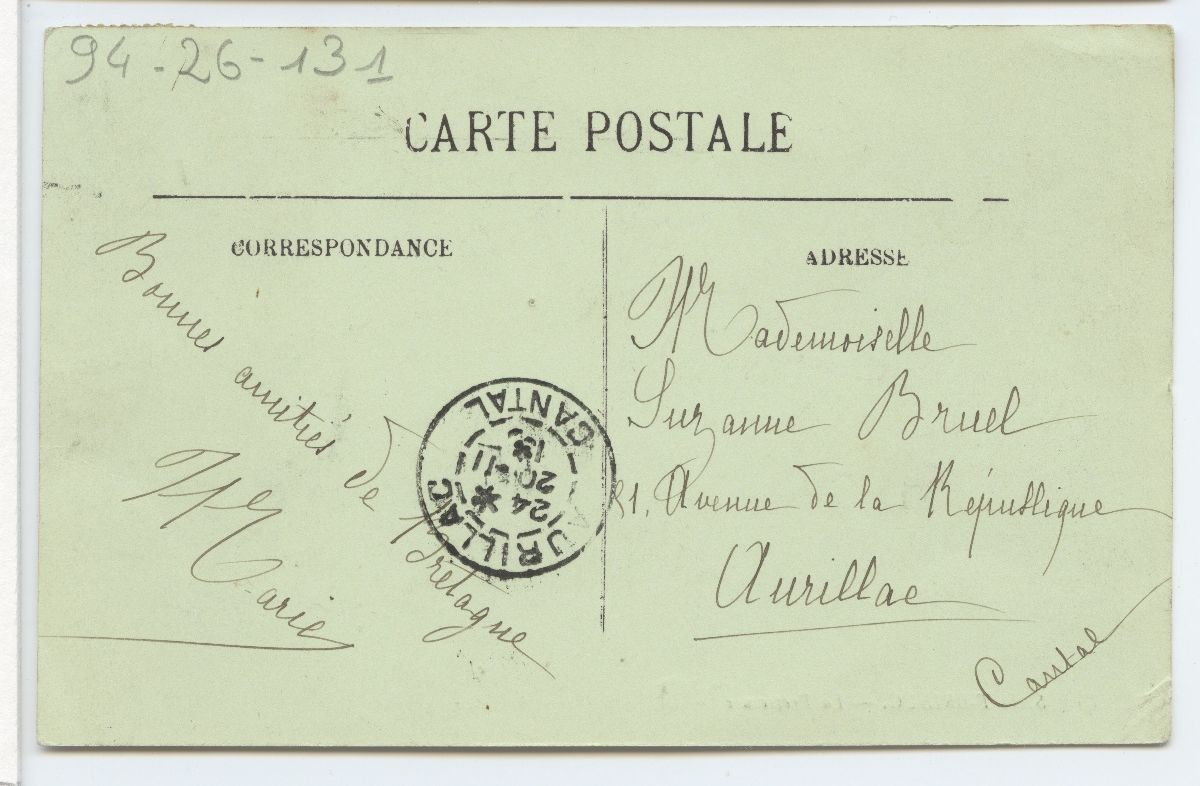 94-26-131
CARTE POSTALE
CORRESPONDANCE
Bonnes amitiés de Bretagne
Marie
AURILLAC
CANTAL
24
20-11
ADRESSE
Mademoiselle
Suzanne Bruel
Avenue de la République
Aurillac
Cantal